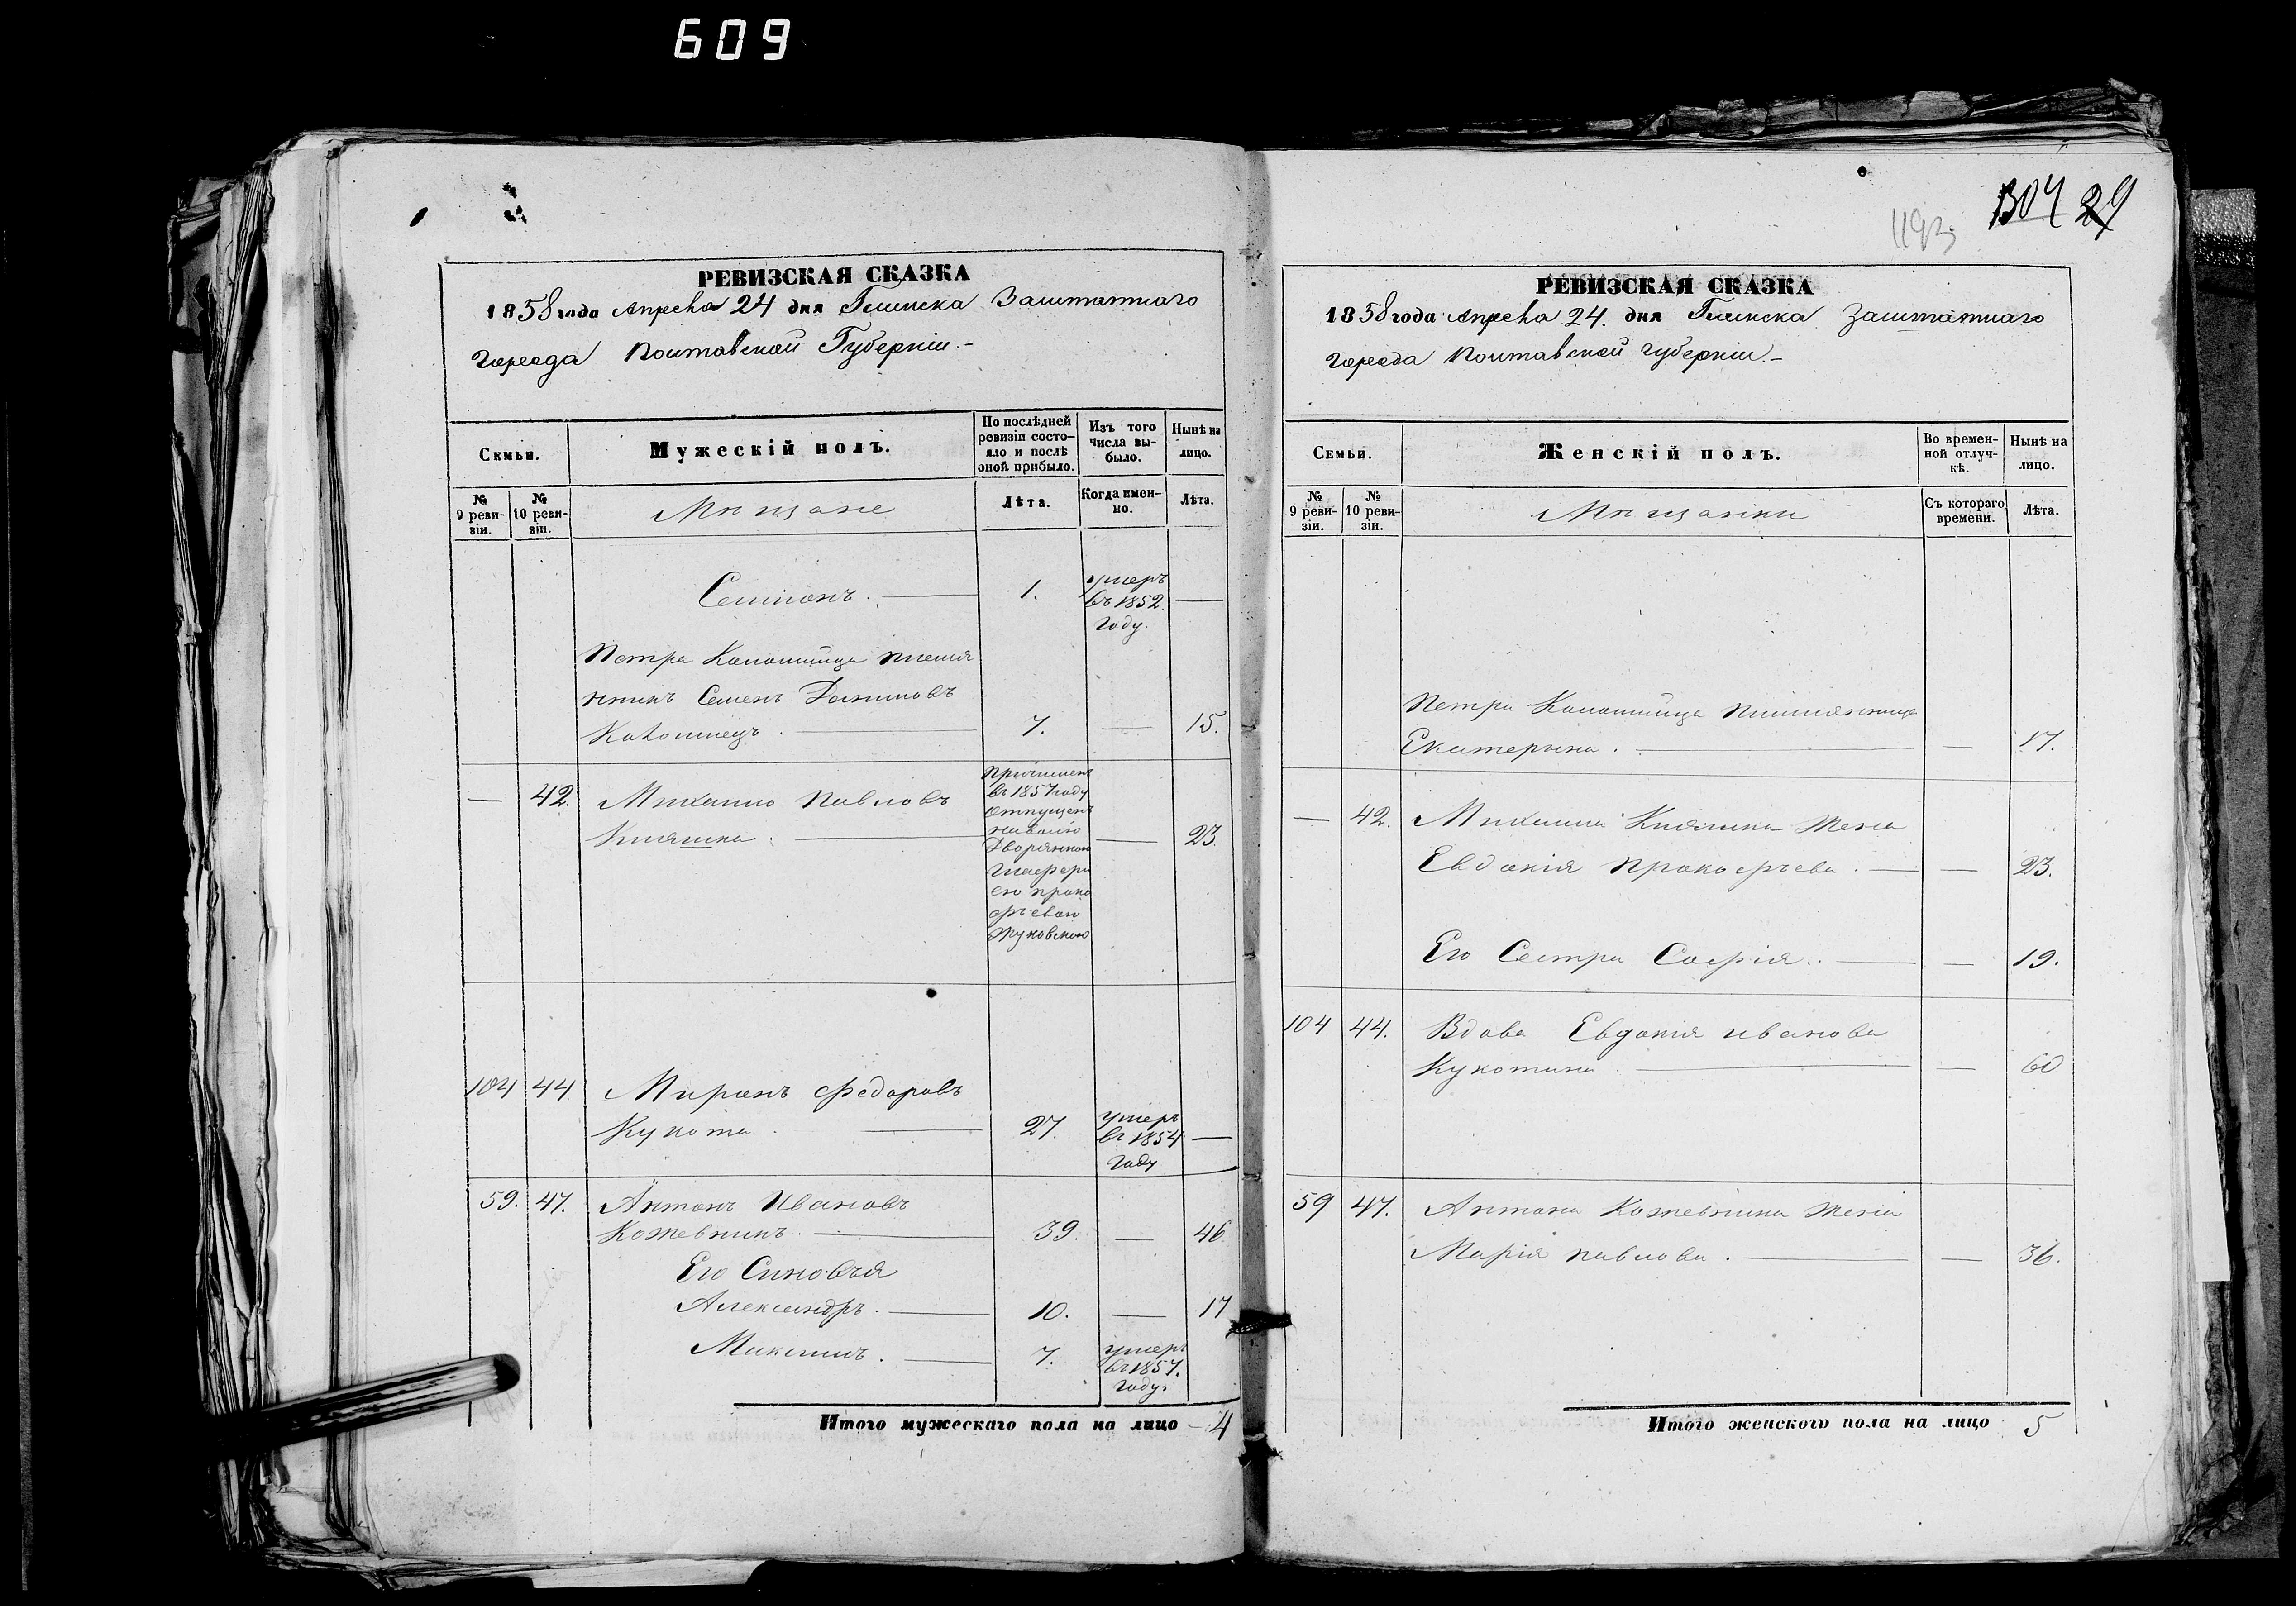 609
1304 29
1193
РЕВИЗСКАЯ СКАЗКА
1858 года Апреля 24 дня Глинска Заштатнаго
города Полтавской Губерніи.-
Семьи.
Мужескій полъ.
По послѣдней ревизіи состо-
яло и послѣ
оной прибыло.
Изъ того
числа вы-
было.
Нынѣ на
лицо.
№
9 реви-
зіи.
№
10 реви-
зіи.
Мѣщане
Лѣта.
Когда имен-
но.
Лѣта.
Семіонъ. 1. умеръ
въ 1852.
году. —
Петра Коломійца племя
нникъ Семенъ Даниловъ
Коломиецъ. 7. — 15.
— 42. Михаило Павловъ
Княшка. — 23.
Причислен
въ 1857 году
отпущенъ
на волю
Дворянкою
Глафери
ею Проко
фьевою
Жуковскою
104 44. Миронъ Федоровъ
Кукота. 27. умеръ
въ 1854
году —
59. 47. Антонъ Ивановъ
Кожевникъ. 39. — 46
Его Сыновья
Александръ. 10. — 17
Максимъ. 7. умеръ
въ 1857.
году.
Итого мужескаго пола на лицо - 4
РЕВИЗСКАЯ СКАЗКА
1858 года Апреля 24. дня Глинска Заштатнаго
города Полтавской губерніи.-
Семьи.
Женскій полъ.
Во времен-
ной отлуч-
кѣ.
Нынѣ на
лицо.
№
9 реви-
зіи.
№
10 реви-
зіи.
Мѣщанки
Съ котораго
времени.
Лѣта.
Петра Коломийца племянница
Екатерина. — 17.
— 42. Михаила Княшки жена
Евдокія Прокофьева. — 23.
Его Сестра Софія. — 19.
104 44. Вдова Евдокія Иванова
Кукотина — 60
59 47. Антона Кожевника жена
Марія Павлова. — 36.
Итого женского пола на лицо 5